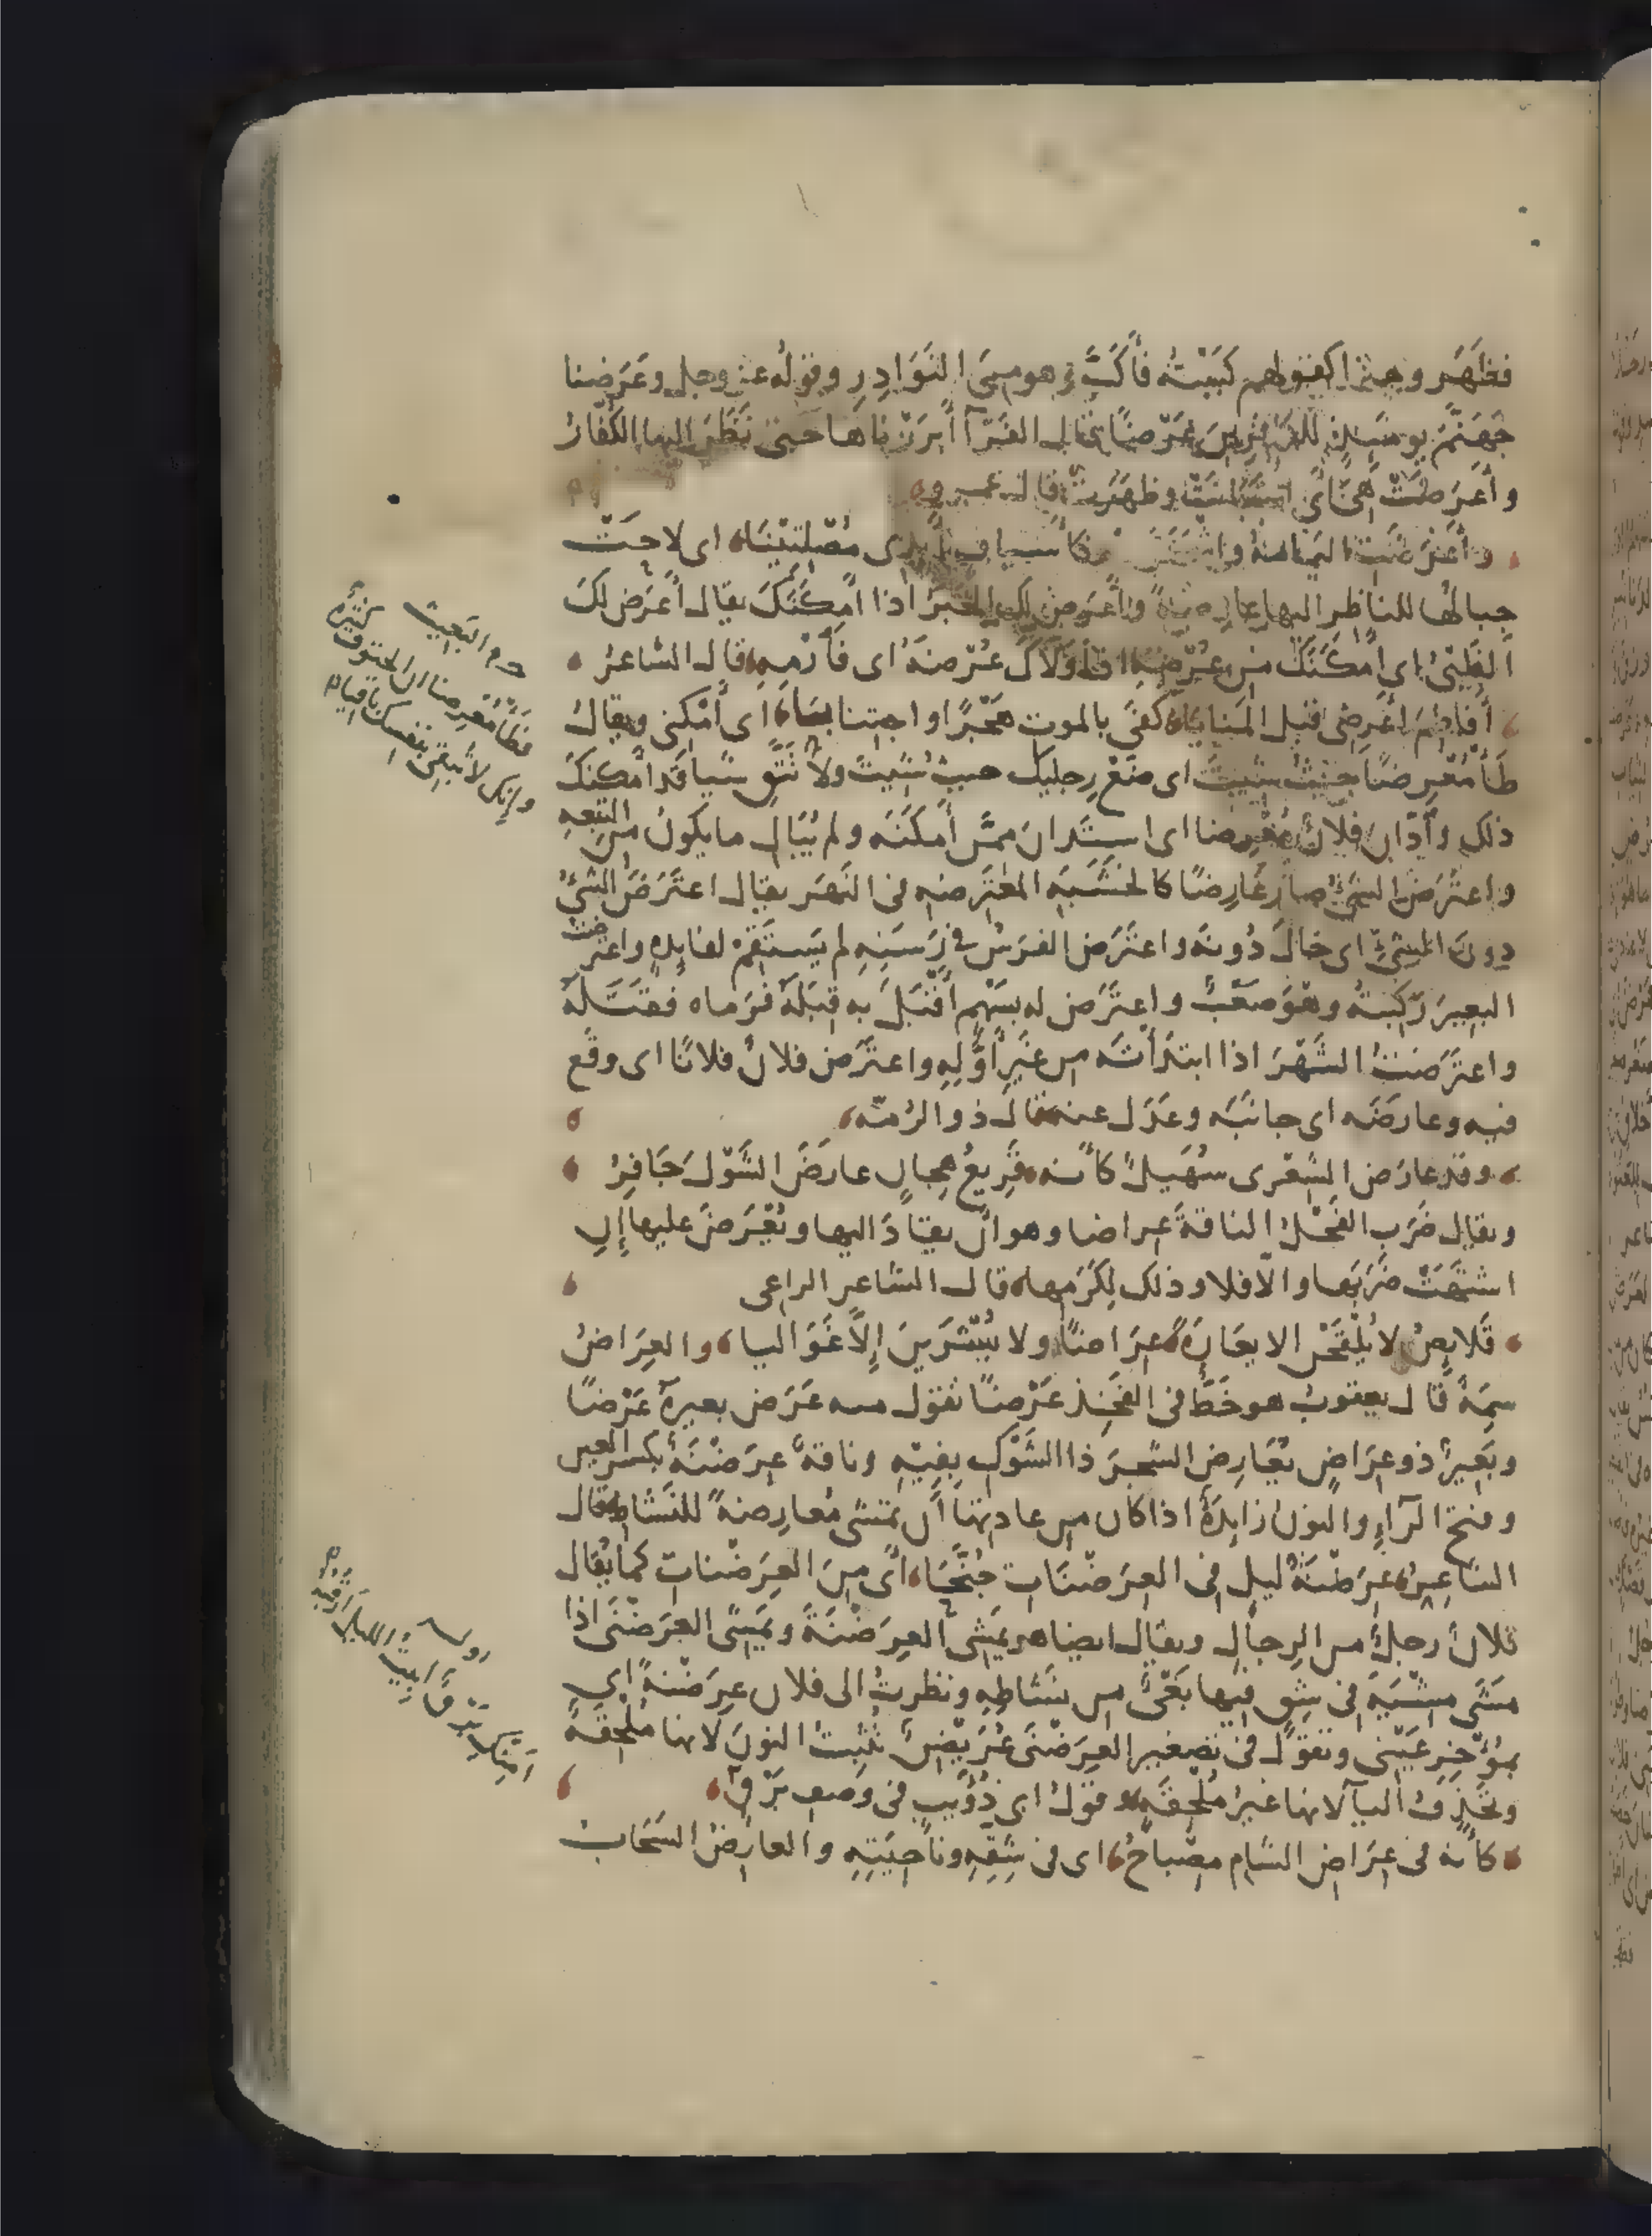 فظَهَر وهذا كقولهم كَبَبْتُه فأَكَبَّ وهو من النَوَادِرِ وقولُه عز وجل وعَرَضنا
جَهَنَّمَ يومَئِذٍ للكافرين عَرْضًا قال الفَرّآ أَبْرَزْناها حتى نَظَرَ اليها الكُفّارُ
وأَعْرَضَتْ هِىَ أى اسْتَبانَتْ وظهَرَت قال عمرو
وأَعْرَضَتِ اليَمامةُ واشْمَخَرَّت كأَسيافٍ بأَيْدى مُصْلِتيْنَا اى لاحَتْ
جبالُها للناظر اليها عارِضَةً وأَعْرَضَ لك الخَيْرُ اذا أَمكَنَكَ يقال أَعْرَضَ لكَ
الظَبْىُ اى أَمْكَنَكَ من عُرْضِه اذا وَلّاكَ عُرْضَهُ اى فَأرْمِه قال الشاعرُ
أَفاطِمَ اعْرِضى قبل المَنايا كَفَى بالموت هَجْرًا واجتنابا اى أَمْكِنى ويقالُ
طَأْ مُعْرِضًا حيثُ شِيتَ اى ضَعْ رِجليك حيث شِيتَ ولا تَتَّقِ شيا قد أمكنكَ
ذلك وٱدّانَ فلانٌ مُعْرِضا اى استَدانَ ممّن أَمكَنَه ولم يُبَالِ ما يكونُ من التَبِعهِ
واعتَرَضَ الشئُ صار عَارِضًا كالخَشَبَه المعْتَرضه فى النَهَر يقال اعتَرَضَ الشئُ
دونَ الشئِ اى حَالَ دُونَه واعتَرَض الفَرسُ فى رَسَنِهِ لم يَستَقِمْ لقايِدِهِ واعترضتُ
البعِيرَ رَكِبْتُه وهُوَ صَعْبٌ واعتَرَض له بسَهْمٍ أَقْبَلَ به قِبَلَهُ فَرَماه فقَتَلَهُ
واعتَرَضْتُ الشَهْرَ اذا ابتدَأتَه من غَيرِ أَوَّلِهِ واعترَضَ فلانٌ فلانًا اى وقَع
فيه وعارَضَه اى جانَبَه وعَدَل عنه قال ذو الرُمّه
وقد عارَضَ الشِعْرى سُهَيلٌ كأنه قَرِيعُ هِجانٍ عارَضَ الشَوْلَ جَافِرُ
ويقال ضَرَبَ الفَحْلُ الناقةَ عِراضا وهو أَن يقتادَ اليها ويُعْرَضَ عليها إِنِ
اشتَهَتْ ضَرَبَها والّا فلا وذلك لِكَرَمِها قال الشاعر الراعى
قَلايِصُ لا يُلْقَحْنَ الا يعَارَةً عِرَاضًا ولا يُشْرَيْنَ إِلّا غَوَاليا والعِرَاضُ
سِمَةٌ قال يعقوبُ هو خَطٌّ فى الفَخِذ عَرْضًا تقول منه عَرَض بعيرهُ عَرْضًا
وبَعيرٌ ذو عِرَاضٍ يُعَارِضُ الشجَرَ ذا الشَوْكِ بِفِيْهِ وناقةٌ عِرَضْنَةٌ بكسرِ العين
وفتح الرَآءِ والنونُ زايِدةٌ اذا كان من عادتها أَن تَمْشى مُعارِضةً للنَشاطِ قال
الشاعِرُ عِرَضْنَةُ ليلٍ فى العِرَضْنَاتِ جُنَّحَا أَى مِنَ العِرَضْنات كما يُقال
فلانٌ رجلٌ من الرجال ويقال ايضا هو يَمْشى العِرَضْنَةَ ويَمْشى العِرَضْنَى اذا
مَشَى مِشْيَةً فى شِقٍ فيها بَغْىٌ من نشَاطِهِ ونظرتُ الى فلان عِرَضْنَةً اى
بمُؤْخِرِ عَيْنى وتقولُ فى تصغير العِرَضْنَى عُرَيْضِنٌ تُثْبِتُ النونَ لانها مُلْحِقَةٌ
وتَحْذِفُ اليآ لانها غيرُ مُلْحِقَةٍ وقولُ ابى ذُؤَيبٍ فى وَصفِ بَرْقٍ
كأنه فى عِرَاضِ الشام مصْباحُ اى فى شِقِّهِ وناحِيَتِهِ والعارِضُ السَحَابُ
البَعيث
فَطَأْ مُعْرِضا ان الحتوف كثيرةٌ
وانك لا تُبْقى بنفسك باقيا
اوله
امنك بَرْقٌ ابِيتُ الليلَ ارقُبُه